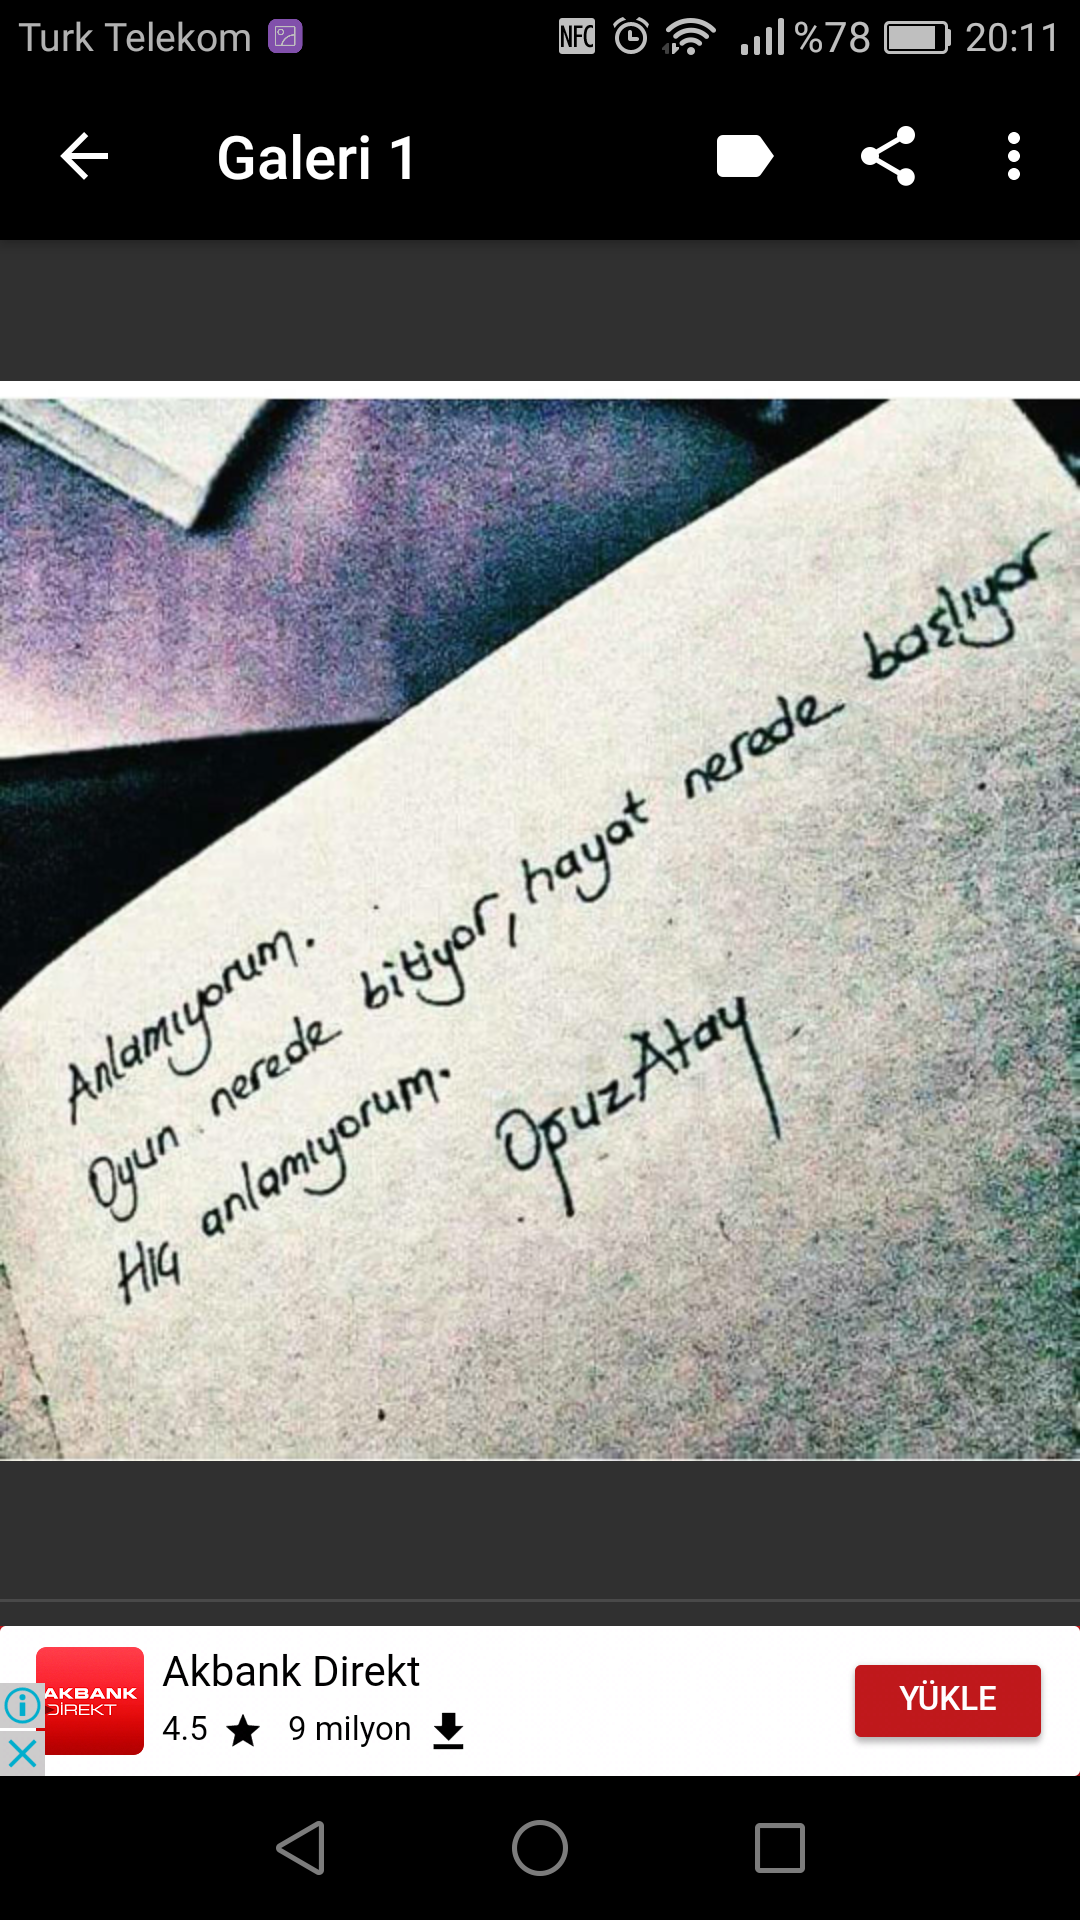 Turk Telekom NFC %78 20:11
Galeri 1
Anlamıyorum.
Oyun nerede bitiyor, hayat nerede başlıyor
Hiç anlamıyorum.
Oğuz Atay
AKBANK
DİREKT
Akbank Direkt
4.5 ★ 9 milyon
YÜKLE